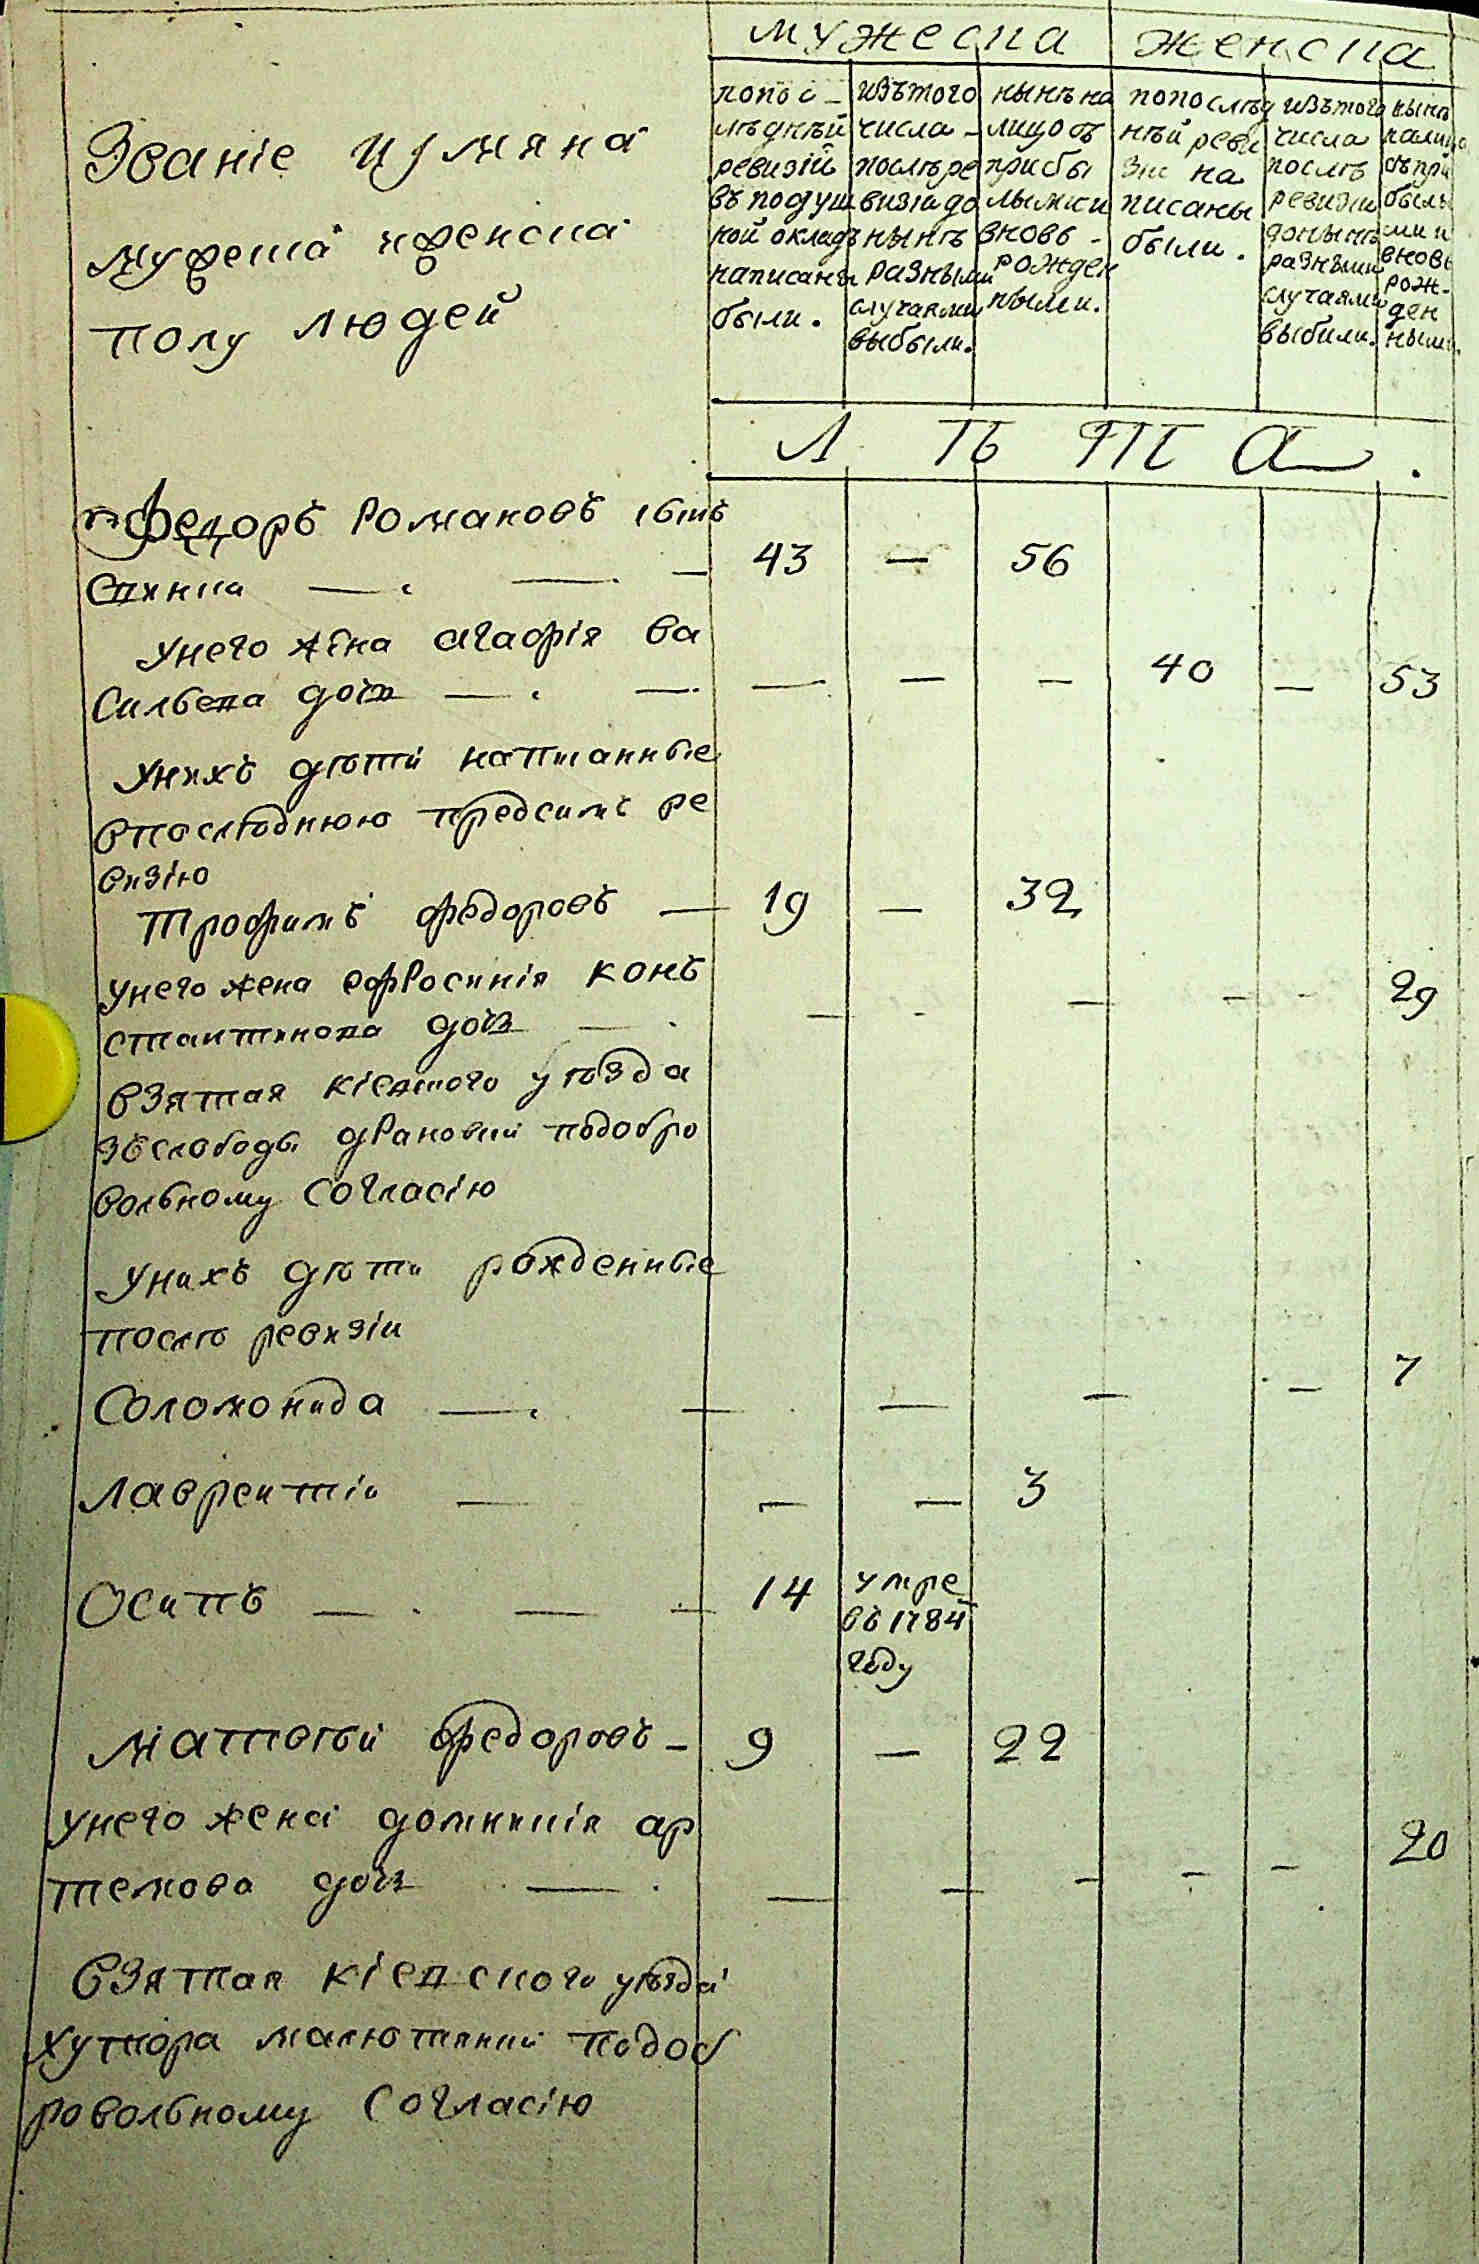 мужеска женска
Званіе и имяна
мужеска и женска
полу людей
попос-
лѣдней
ревизій
въ подуш
ной окладъ
написаны
были.
изътого
числа -
послѣ ре
визіи до
нынѣ
разными
случаями
выбыли.
нынѣ на
лицо съ
прибы
лыми и
вновь -
рожден
ными.
попослѣд
нѣй реви
зіи на
писаны
были.
изътого
числа
послѣ
ревизіи
донынѣ
разными
случаями
выбили.
нынѣ
налицо
съ при
былы
ми и
вновь
рож-
ден
ными.
Л Ѣ Т А .
Федоръ Романовъ сынъ
43 — 56
унего жена агафія ва
сильева дочь — . — — — — 40 — 53
унихъ дѣти написанные
впослѣднюю предсимъ ре
визію
Трофимъ федоровъ — 19 — 32
унего жена ефросинія конъ
стантинова дочь — . — - — - - 29
взятая кіевского уѣзда
зслободы подобро
вольному согласію
унихъ дѣти рожденные
послѣ ревизіи
Соломонида — . — — — — 7
лаврентій — — — 3
Осипъ — . — — 14 умре
въ 1784
году
матвѣй федоровъ - 9 — 22
унего жена домникія ар
темова дочь — . — — - - - 20
взятая кіевского уѣзда
хутора подоб
ровольному согласію